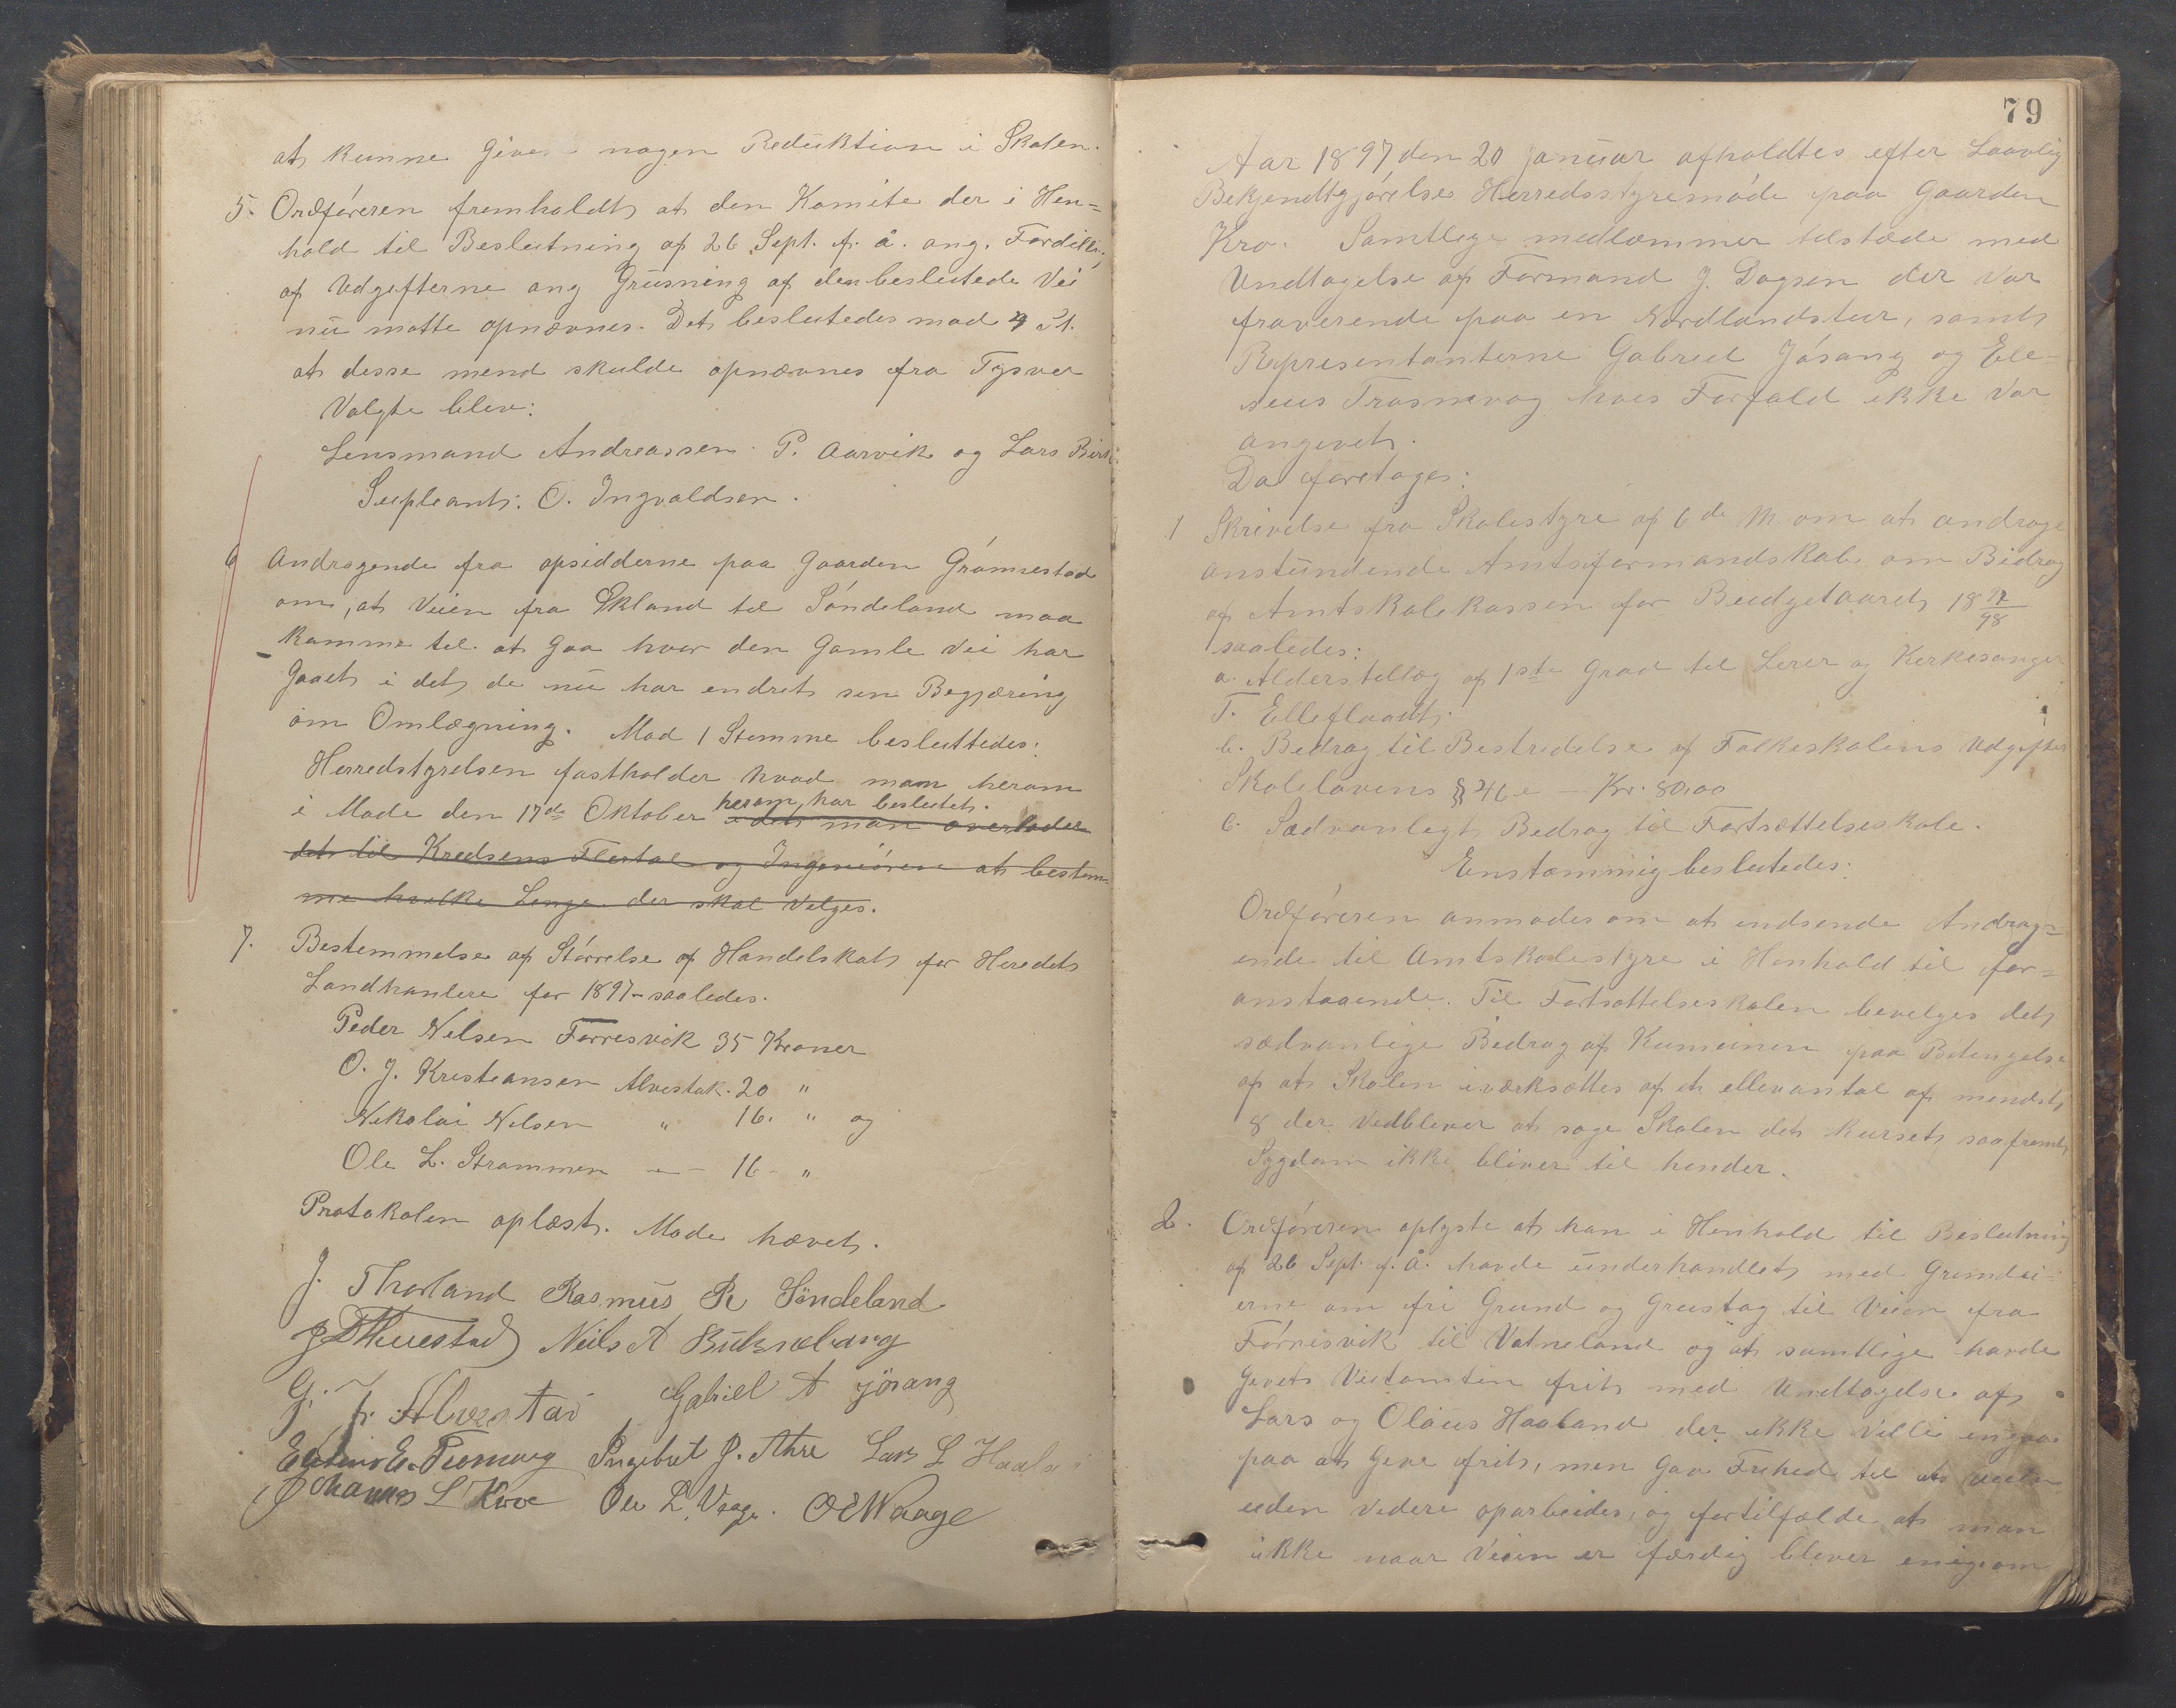 at kunne give nogen Reduktion i Skolen.
5. Ordføreren fremholdt at den Komite der i Hen=
hold til Beslutning af 26 Sept. f. å. ang. Fordiling
af Udgifterne ang Grusning af den besluttede Vei
nu matte opnævnes. Det beslutedes mod 4 St.
at desse mend skulde opnævnes fra Tysver
Valgte blev:
Lensmand Andreassen P. Aarvik og Lars Birk
Supleant: O. Ingvaldsen.
6 Andragende fra opsidderne paa Gaarden Grønnestad
om, at Veien fra Ekland til Søndeland maa
komme til at gaa hvor den Gamle Vei har
Gaaet i det de nu har endret sin Begjæring
om Omlægning. Mod 1 Stemme besluttedes:
Herredstyrelsen fastholder hvad man herom
i Møde den 17de Oktober herom, har beslutet.
i det man overlader
det til Kredsens Flertal og Ingeniøren at bestem=
me hvilke Lenge der skal velges.
7. Bestemmelse af Størrelse af Handelskat for Heredets
Landhanlere for 1897 – saaledes.
Peder Nelsen Førresvik 35 Kroner
O. J. Kristiansen Alvestak. 20 "
Nikolai Nilsen " 16. " og
Ole L. Strømmen – " – 16 – "
Protokolen oplæst. Møde hævet.
J. Thorland Rasmus R Søndeland
Niels A
G. Gabriel A Jösang
Ingebret J. Lars L
Johannes L Kroe Ole L. Vaage. O E Waage
79
Aar 1897 den 20 Januar afholdtes efter Laavlig
Bekjendtgjørelse Herredsstyremøde paa Gaarden
Kro. Samtlige medlemmer tilstæde med
Undtagelse af Formand J. Dagsen der var
fraverende paa en Nordlandstur, samt
Representanterne Gabriel Jøsang og Ele-
seus Trosnavag hvis Forfald ikke var
angivet.
Da foretoges:
1 Skrivelse fra Skolestyre af 6 de M. om at andrage
anstundende Amtsformandskab om Bidrag
af Amtskolekassen for Budgetaaret 18 97/98
saaledes:
a. Alderstillæg af 1ste Grad til Lerer og Kirkesanger
T. Elleflaadt.
b. Bedrag til Bestridelse af Folkeskolens Udgifter
Skolelovens § 46 e – Kr. 80,00
c. Sædvanlegt Bedrag til Fortsættelseskole.
Enstæmmig beslutedes:
Ordføreren anmodes om at indsende Andrag=
ende til Amtskolestyre i Henhold til for=
anstaaende. Til Fortsættelseskolen bevelges det
sædvanlige Bidrag af Kumeinen paa Betingelse
af at Skolen iværksættes af et ellevantal af mendst
8 der vedblever at søge Skolen det kurset saafremt
Sygdom ikke bliver til hinder.
2. Ordføreren oplyste at han i Henhold til Beslutning
af 26 Sept. f. å. havde underhandlet med Grundei-
erne om fri Grund og Grustag til Veien fra
Førrisvik til Vatneland og at samtlige havde
Givet Veitomten frit med Undtagelse af
Lars og Olaus Haaland der ikke Ville engaa
paa at Give frit, men Gav Frihed til at veien
uden videre oparbeides, og fortilfælde at man
ikke naar Veien er færdig blever enig om